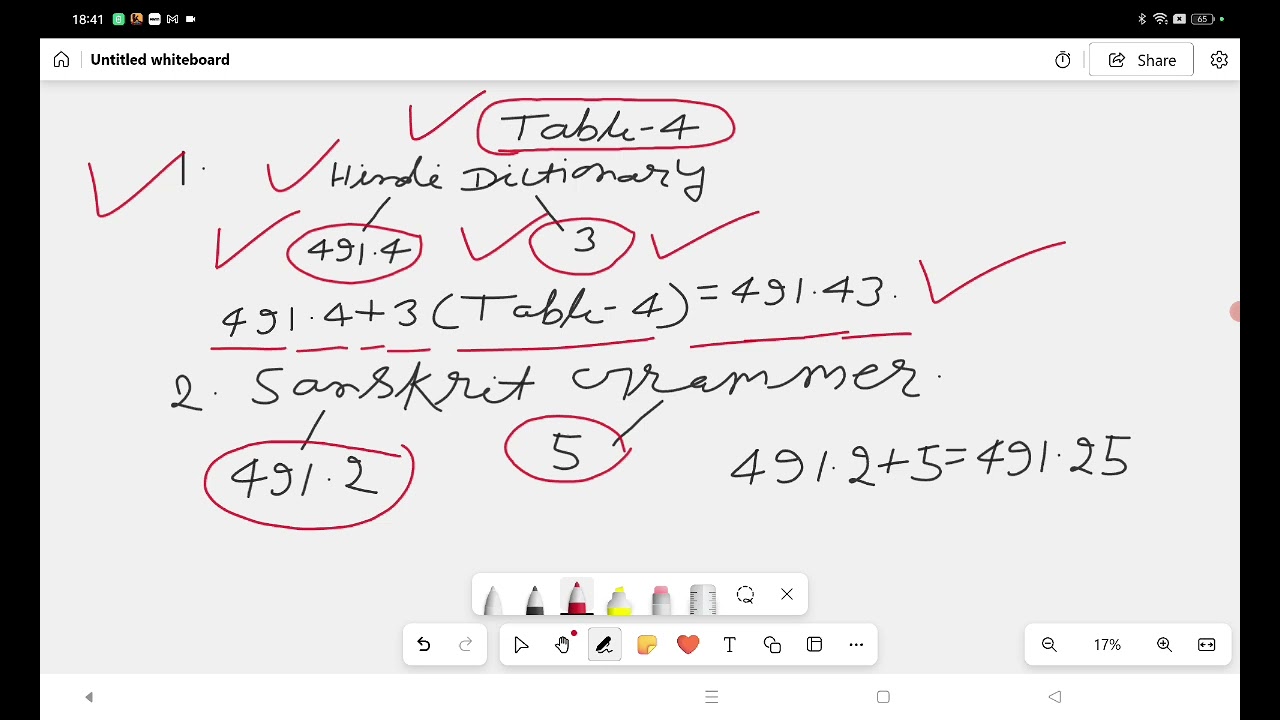 18:41
65
Untitled whiteboard
Share
Table-4
1. Hindi Dictionary
491.4 3
491.4+3 (Table-4) = 491.43.
2. Sanskrit Grammer.
491.2 5 491.2+5=491.25
T
17%